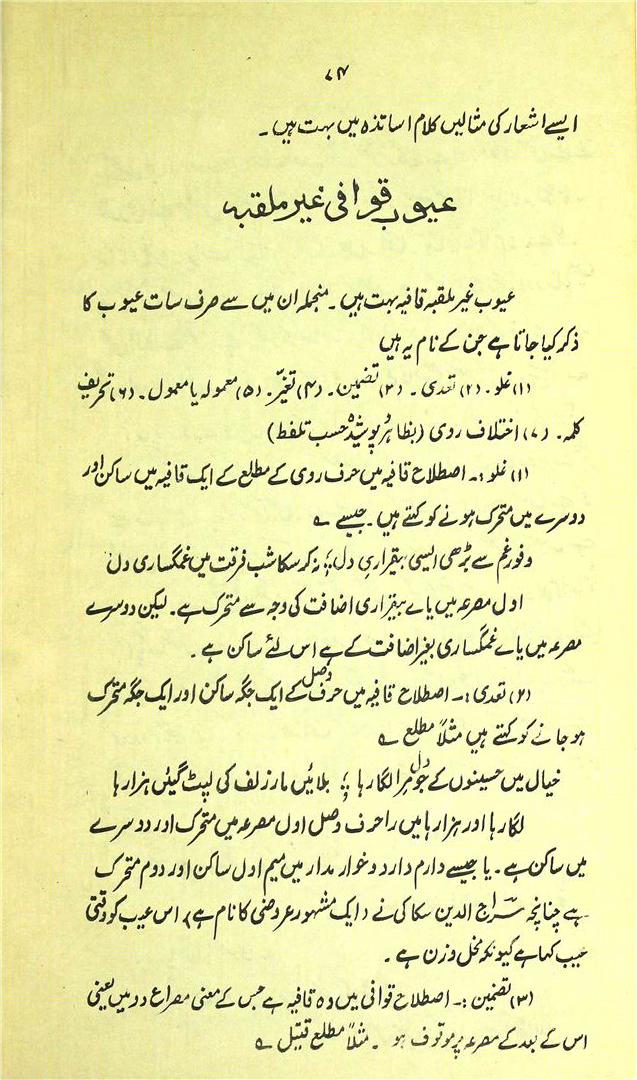 ۷۴
ایسے اشعار کی مثالیں کلام اساتذہ میں بہت ہیں ۔
عیوب قوافی غیر ملقبہ
عیوب غیر ملقبہ قافیہ بہت ہیں ۔ منجملہ ان میں سے صرف سات عیوب کا
ذکر کیا جاتا ہے جن کے نام یہ ہیں
(۱) غلو ۔ (۲) تعدی ۔ (۳) تضمین ۔ (۴) تغیّر ۔ (۵) معمولہ یا معمول ۔ (۶) تحریف
کلمہ ۔ (۷) اختلاف روی (بظاہر و پوشیدہ حسب تلفظ)
(۱) غلو :۔ اصطلاح قافیہ میں حرف روی کے مطلع کے ایک قافیہ میں ساکن اور
دوسرے میں متحرک ہونے کو کہتے ہیں ۔ جیسے ؎
وفور غم سے بڑھی ایسی بیقراریِ دل ؛ نہ کر سکا شب فرقت میں غمگساری دل
اول مصرعہ میں یائے بیقراری اضافت کی وجہ سے متحرک ہے ۔ لیکن دوسرے
مصرعہ میں یائے غمگساری بغیر اضافت کے ہے اس لئے ساکن ہے ۔
(۲) تعدی :۔ اصطلاح قافیہ میں حرف وصل کے ایک جگہ ساکن اور ایک جگہ متحرک
ہو جانے کو کہتے ہیں مثلاً مطلع ؎
خیال میں حسینوں کے جو دل مرا لگا رہا ؛ بلائیں مار زلف کی لپٹ گئیں ہزارہا
لگا رہا اور ہزارہا میں را حرف وصل اول مصرعہ میں متحرک اور دوسرے
میں ساکن ہے ۔ یا جیسے دارم دارد و غوار مدار میں میم اول ساکن اور دوم متحرک
ہے چنانچہ سراج الدین سکاکی نے (ایک مشہور عروضی کا نام ہے) اس عیب کو وقتی
عیب کہا ہے کیونکہ مخل وزن ہے ۔
(۳) تضمین :۔ اصطلاح قوافی میں وہ قافیہ ہے جس کے معنی مصراع دد میں یعنی
اس کے بعد کے مصرعہ پر موقوف ہو ۔ مثلاً مطلع قتیل ؎